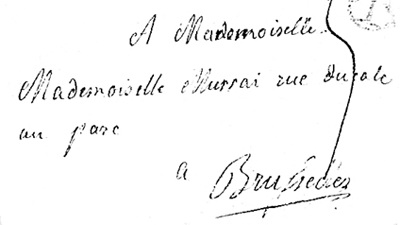 A Mademoiselle
Mademoiselle Murrai rue Ducale
au parc
a Brusselles